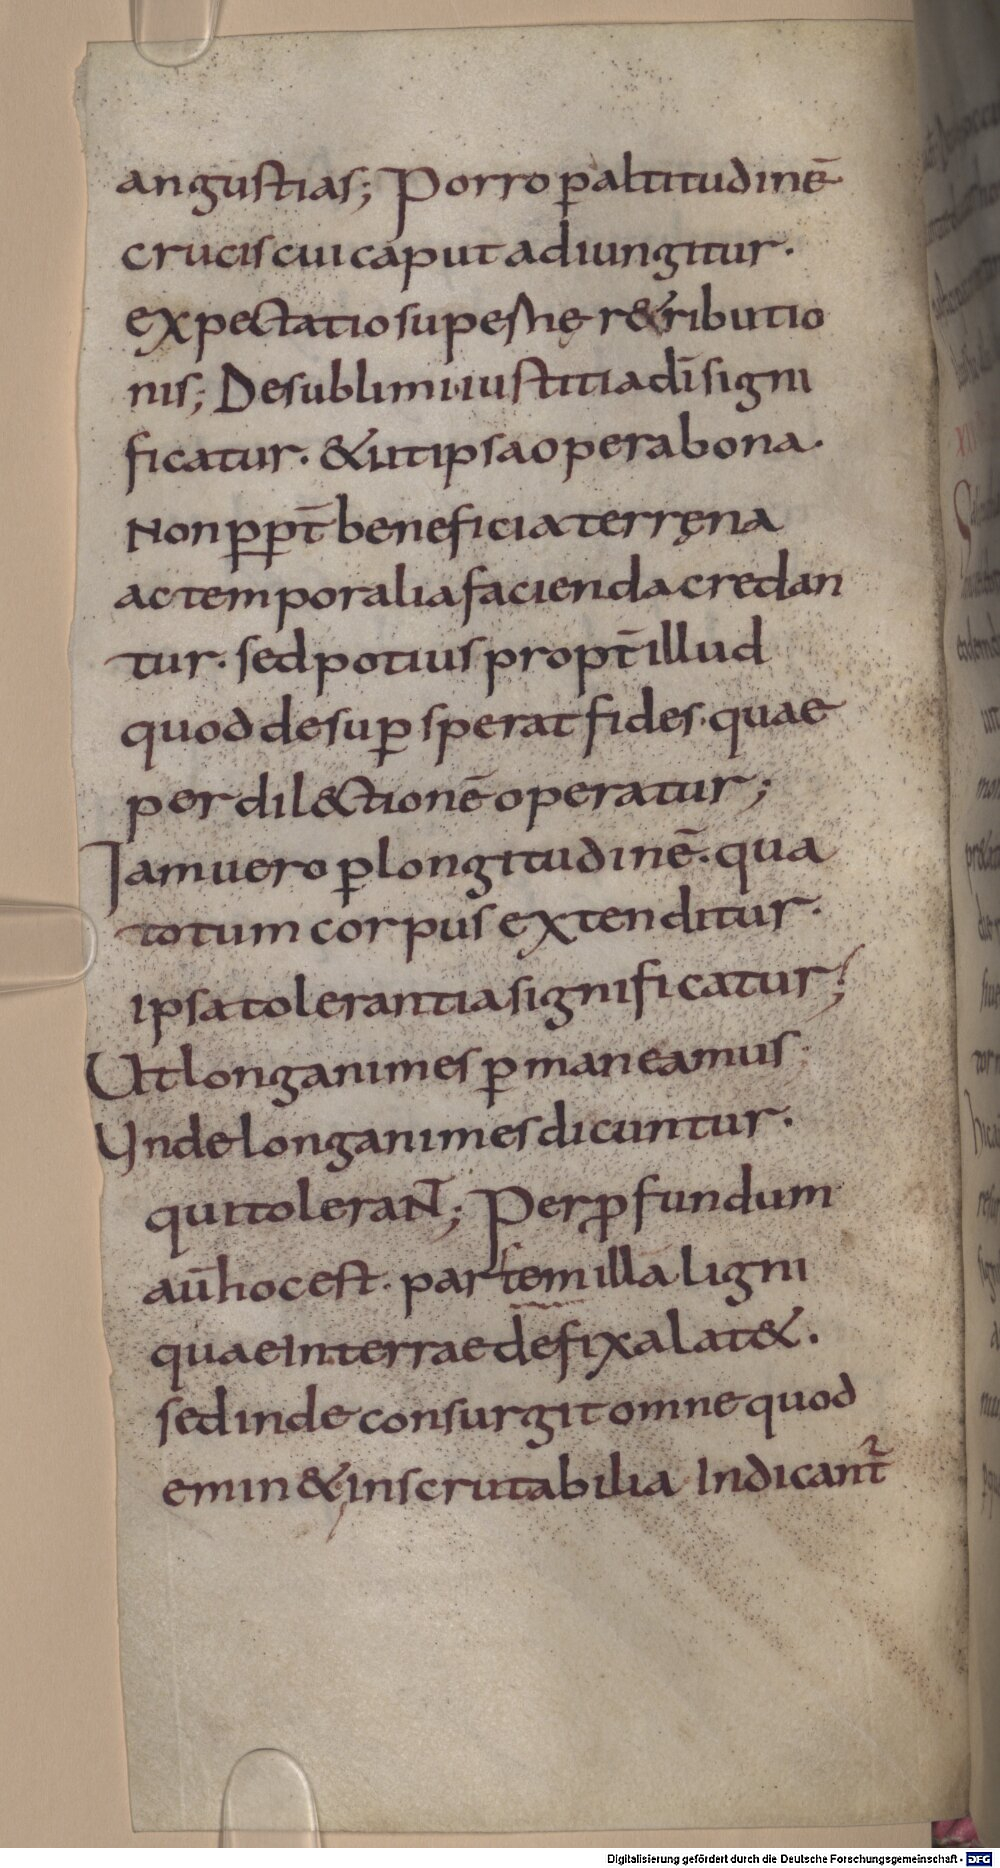 angustias; Porro ꝑ altitudinē
crucis cui caput adiungitur.
expectatio supernę r&ributio
nis; De sublimi iustitia dī signi
ficatur. & ut ipsa opera bona.
Non ꝓpt̄ beneficia terręna
ac temporalia facienda credan
tur. sed potius propt̄ illud
quod desuꝑ sperat fides. quae
per dil&ctionē operatur;
Iam uero ꝑ longitudinē. qua
totum corpus extenditur.
ipsa tolerantia significatur;
Ut longanimes ꝑmaneamus.
Unde longanimes dicuntur.
qui tolerant; Per ꝓfundum
aū hoc est. partem illa ligni
quae In terrae defixa lat&.
sed inde consurgit omne quod
emin& inscrutabilia Indicant̄²
Digitalisierung gefördert durch die Deutsche Forschungsgemeinschaft - DFG